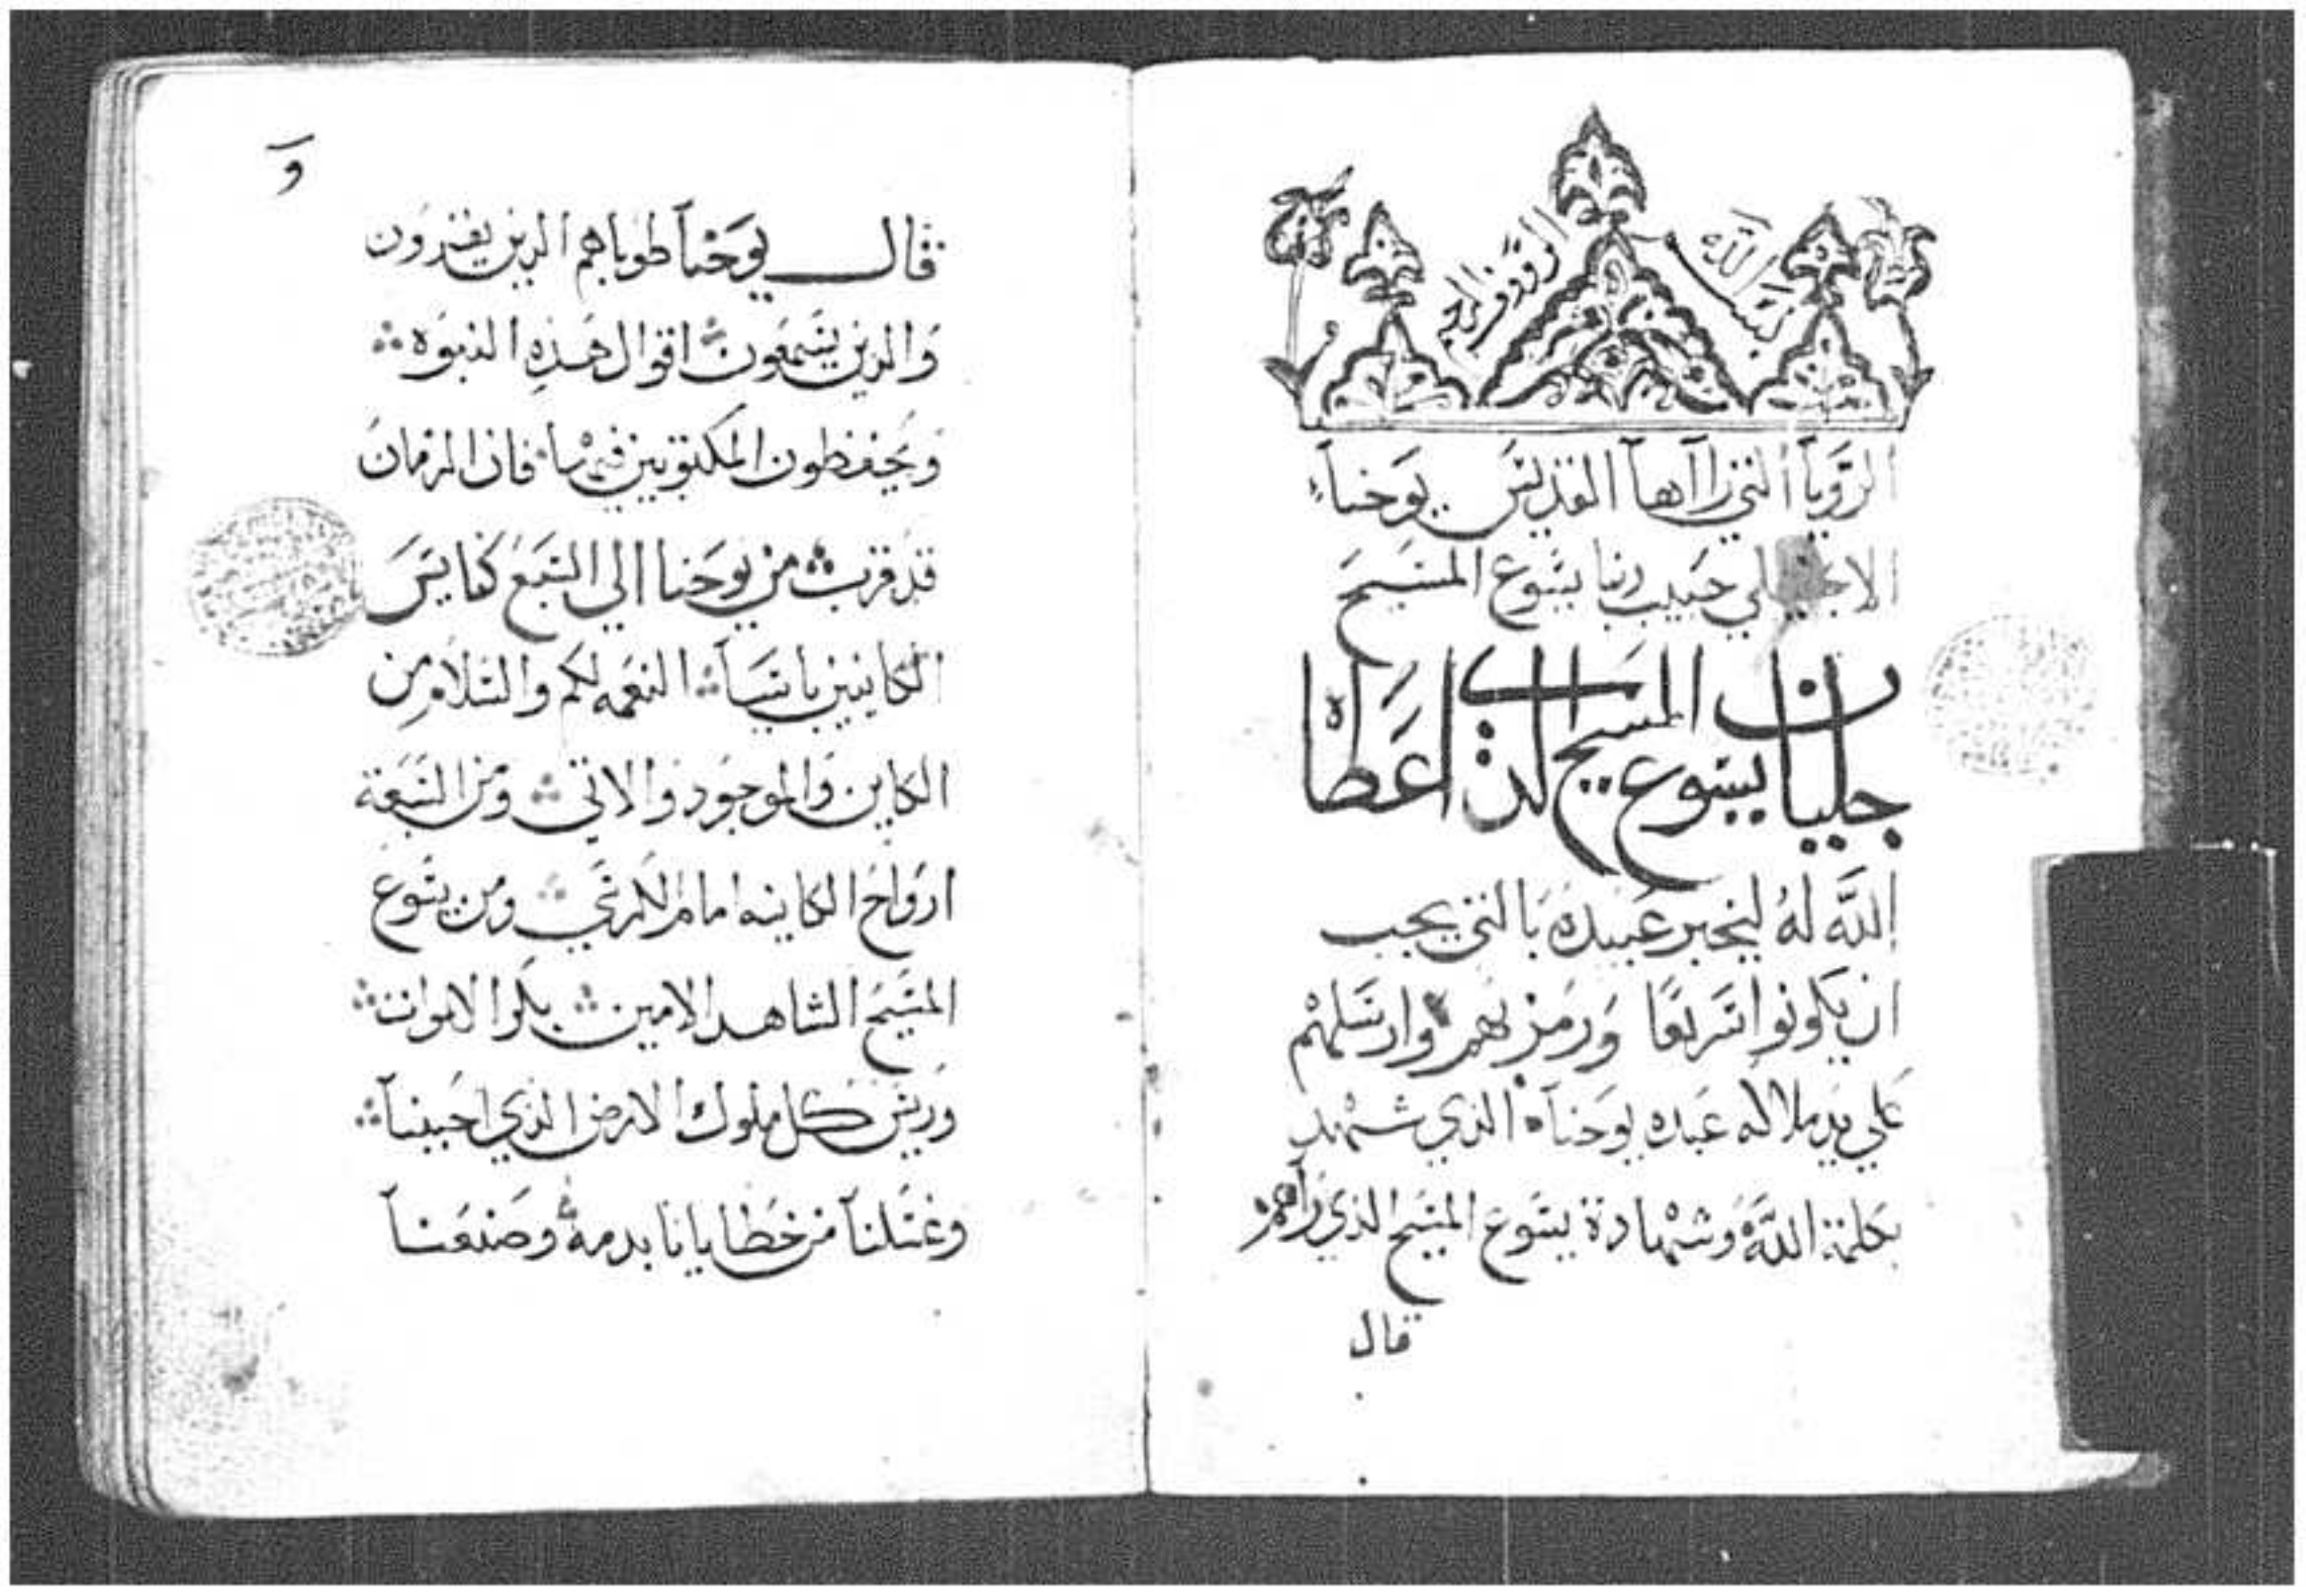 بسم الله
الرووف الرحيم
الرؤيا التي راآها القديس يوحنا
الانجيلي حبيب ربنا يسوع المسيح
جليان يسوع المسيح الذي اعطاه
الله له ليخبر عبيده بالتي يجب
ان يكونوا سريعًا ورمز بهم وارسلهم
علي يد ملاكه عبده يوحنا الذي شهد
بكلمة الله وشهادة يسوع المسيح الذي راهم
قال
قال يوحنا طوباهم الدين يقرون
والدين يسمعون اقوال هذه النبوه
ويحفظون المكتوبين فيها فان الزمان
قد قرب من يوحنا الي السبع كنايس
الكاينين باسيا النعمه لكم والسلام من
الكاين والموجود والاتي ومن السبعة
ارواح الكاينه امام الكرسي ومن يسوع
المسيح الشاهد الامين بكر الاموات
وريس كل ملوك الارض الذي احبنا
وغسلنا من خطايانا بدمه وصنعنا